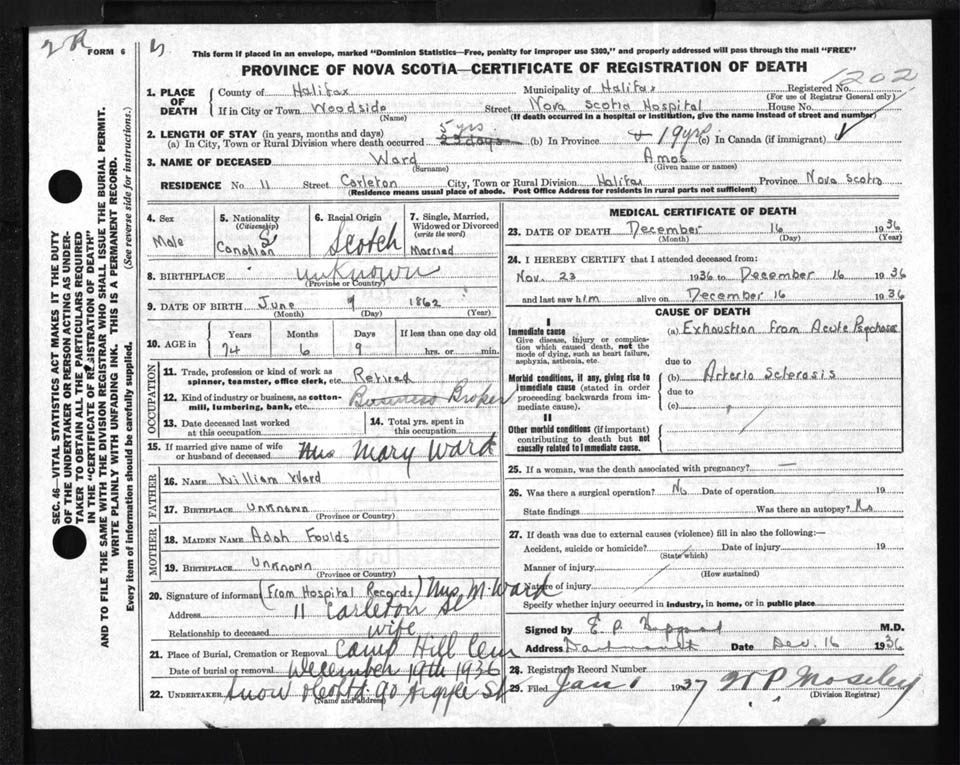 2R FORM 6
This form if placed in an envelope, marked "Dominion Statistics—Free, penalty for improper use $300," and properly addressed will pass through the mail "FREE"
PROVINCE OF NOVA SCOTIA—CERTIFICATE OF REGISTRATION OF DEATH
1202
1. PLACE OF DEATH County of Halifax Municipality of Halifax Registered No.
(For use of Registrar General only)
If in City or Town Woodside Street Nova Scotia Hospital House No.
(Name) (If death occurred in a hospital or institution, give the name instead of street and number)
2. LENGTH OF STAY (in years, months and days)
(a) In City, Town or Rural Division where death occurred 5 yrs. 23 days (b) In Province 19 yrs (c) In Canada (if immigrant)
3. NAME OF DECEASED Ward Amos
(Surname) (Given name or names)
RESIDENCE No. 11 Street Carleton City, Town or Rural Division Halifax Province Nova Scotia
(Residence means usual place of abode. Post Office Address for residents in rural parts not sufficient)
4. Sex Male
5. Nationality (Citizenship) Canadian
6. Racial Origin Scotch
7. Single, Married, Widowed or Divorced (write the word) Married
8. BIRTHPLACE Unknown
(Province or Country)
9. DATE OF BIRTH June 9 1862
(Month) (Day) (Year)
10. AGE in Years Months Days If less than one day old
74 6 9 hrs. or min.
OCCUPATION
11. Trade, profession or kind of work as spinner, teamster, office clerk, etc. Retired
12. Kind of industry or business, as cotton-mill, lumbering, bank, etc. Business Broker
13. Date deceased last worked at this occupation
14. Total yrs. spent in this occupation
15. If married give name of wife or husband of deceased Mrs Mary Ward
FATHER
16. NAME William Ward
17. BIRTHPLACE Unknown
(Province or Country)
MOTHER
18. MAIDEN NAME Adah Foulds
19. BIRTHPLACE Unknown
(Province or Country)
20. Signature of informant (From Hospital Records) Mrs M. Ward
Address 11 Carleton St
Relationship to deceased wife
21. Place of Burial, Cremation or Removal Camp Hill Cem
Date of burial or removal December 19th 1936
22. UNDERTAKER Snow & Co Ltd 90 Argyle St
(Name and address)
MEDICAL CERTIFICATE OF DEATH
23. DATE OF DEATH December 16 1936
(Month) (Day) (Year)
24. I HEREBY CERTIFY that I attended deceased from:
Nov. 23 1936 to December 16 1936
and last saw him alive on December 16 1936
CAUSE OF DEATH
I
Immediate cause (a) Exhaustion from Acute Psychosis
Give disease, injury or complication which caused death, not the mode of dying, such as heart failure, asphyxia, asthenia, etc.
due to
Morbid conditions, if any, giving rise to immediate cause (stated in order proceeding backwards from immediate cause). (b) Arterio Sclerosis
due to
(c)
II
Other morbid conditions (if important) contributing to death but not causally related to immediate cause.
25. If a woman, was the death associated with pregnancy? —
26. Was there a surgical operation? No Date of operation 19
State findings Was there an autopsy? No
27. If death was due to external causes (violence) fill in also the following:—
Accident, suicide or homicide? Date of injury 19
(State which)
Manner of injury
(How sustained)
Nature of injury
Specify whether injury occurred in industry, in home, or in public place
Signed by E. P. M.D.
Address Dartmouth Date Dec. 16 1936
28. Registrar's Record Number
29. Filed Jan 1 1937 W P. Moseley
(Division Registrar)
SEC. 46—VITAL STATISTICS ACT MAKES IT THE DUTY
OF THE UNDERTAKER OR PERSON ACTING AS UNDER-
TAKER TO OBTAIN ALL THE PARTICULARS REQUIRED
IN THE "CERTIFICATE OF REGISTRATION OF DEATH"
AND TO FILE THE SAME WITH THE DIVISION REGISTRAR WHO SHALL ISSUE THE BURIAL PERMIT.
WRITE PLAINLY WITH UNFADING INK. THIS IS A PERMANENT RECORD.
Every item of information should be carefully supplied. (See reverse side for instructions.)